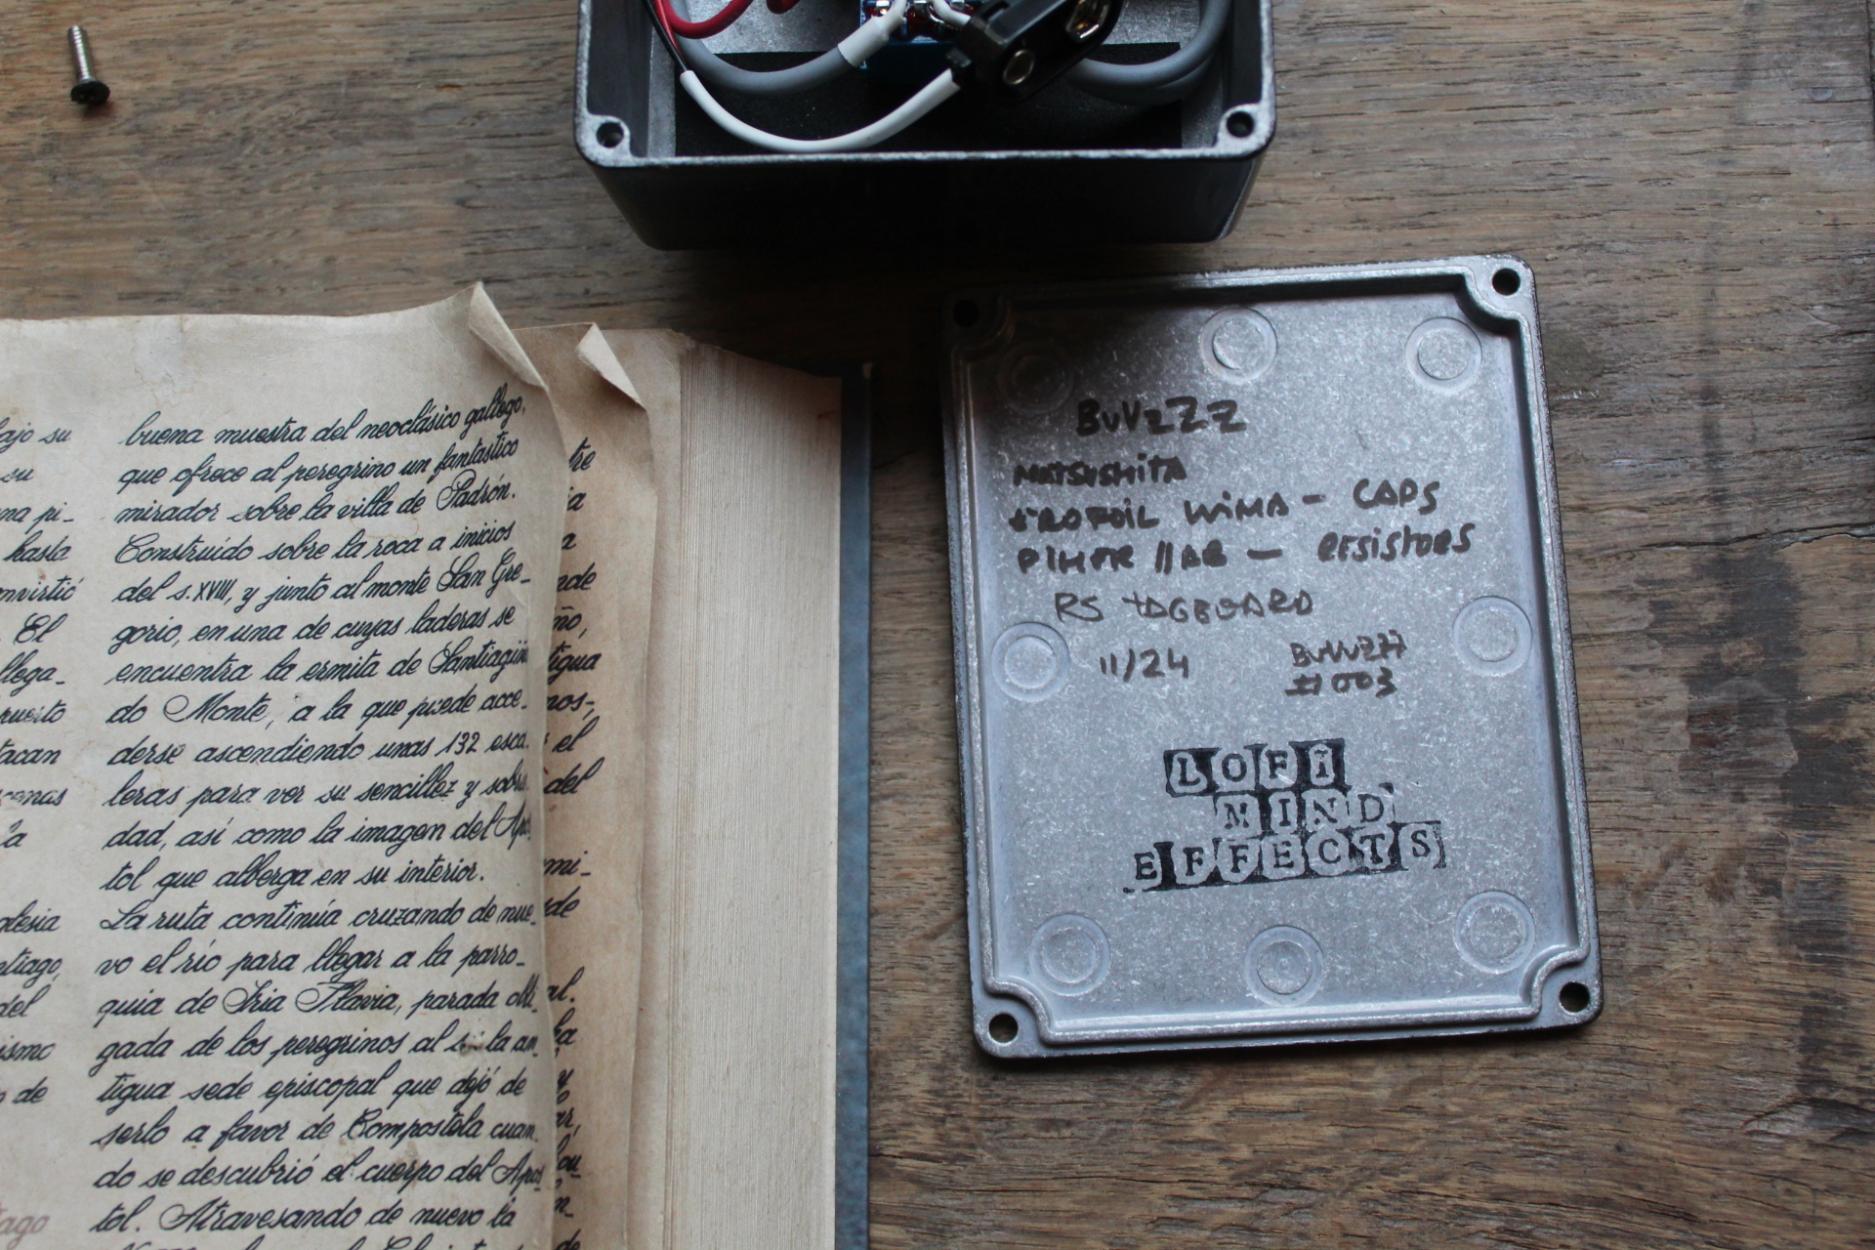 ajo su
su
na pi-
hasta
nvirtió
El
llega-
puesto
tacan
cenas
glesia
ntiago,
del
ismo
o de
tago
buena muestra del neoclásico gallego,
que ofrece al peregrino un fantástico
mirador sobre la villa de Padrón.
Construido sobre la roca a inicios
del s. XVIII, y junto al monte San Gre-
gorio, en una de cuyas laderas se
encuentra la ermita de Santiaguiño
do Monte, a la que puede acce-
derse ascendiendo unas 132 esca-
leras para ver su sencillez y sobrie-
dad, así como la imagen del Após-
tol que alberga en su interior.
La ruta continúa cruzando de nue-
vo el río para llegar a la parro-
quia de Iria Flavia, parada obli-
gada de los peregrinos al ser la an-
tigua sede episcopal que dejó de
serlo a favor de Compostela cuan-
do se descubrió el cuerpo del Após-
tol. Atravesando de nuevo la
tre
ia
a
nde
ño,
tigua
nos-
el
del
mi-
de
al.
ha
y
ar,
n-
de
BUVZZZ
MATSUSHITA
TROPFOIL WIMA - CAPS
PIHER IIAB - RESISTORS
RS TAGBOARD
11/24
BUVVZZZ
#003
LOFI
MIND
EFFECTS